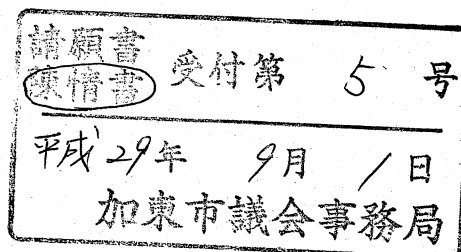 請願書
陳情書
受付第 5 号
平成29年 9月 1日
加東市議会事務局